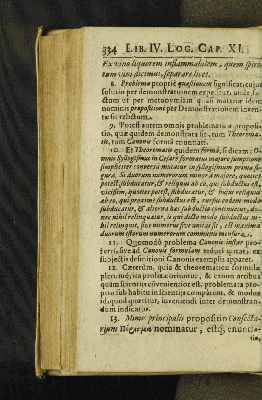 334 LIB. IV. LOG. CAP. XI.
Ex vino liquorem inflammabilem, quem spiri-
tum vini dicimus, separare licet.
8. Problema propriè quæstionem significat, cujus
solutio per demonstrationem expetitur, unde fa-
ctum ut per metonymiam quasi materiæ idem
nominis propositioni per Demonstrationem inven-
tæ sit relictum.
9. Potest autem omnis problematica proposi-
tio, quæ quidem demonstrata sit, tum Theorema-
tis, tum Canonis formâ enuntiari.
10. Et Theorematis quidem formâ, si dicam: O-
mnis Syllogismus in Cesare formatus majore sumptione
simpliciter conversa mutatur in syllogismum primæ fi-
guræ. Si duorum numerorum minor à majore, quoties
potest, subducatur, & reliquus ab eo, qui subductus est,
vicissim, quoties potest, subducatur, & hujus reliquus
ab eo, qui proximè subductus est, rursus eodem modo
subducatur, & alterna hæc subductio continuetur, do-
nec nihil relinquatur, is qui dicto modo subductus ni-
hil reliquit, sive numerus sive unitas sit, est maxima
duorum istorum numerorum communis mensura.
11. Quomodò problema Canonis instar pro-
feri, sive ad Canonis formulam reduci queat, ex
subjectis definitioni Canonis exemplis apparet.
12. Cæterùm, quia & theorematicæ formulæ
plerumque, ita prolatæ oriuntur, & canon artibus
quàm scientiis convenientior est, problemata pro-
pitio sub habitu in scientiis comparent, & modus
id, quod quæritur, inveniendi inter demonstran-
dum indicatur.
13. Minus principalis propositio Consecta-
rium Πόρισμα nominatur, estq; enuncia-
tio,